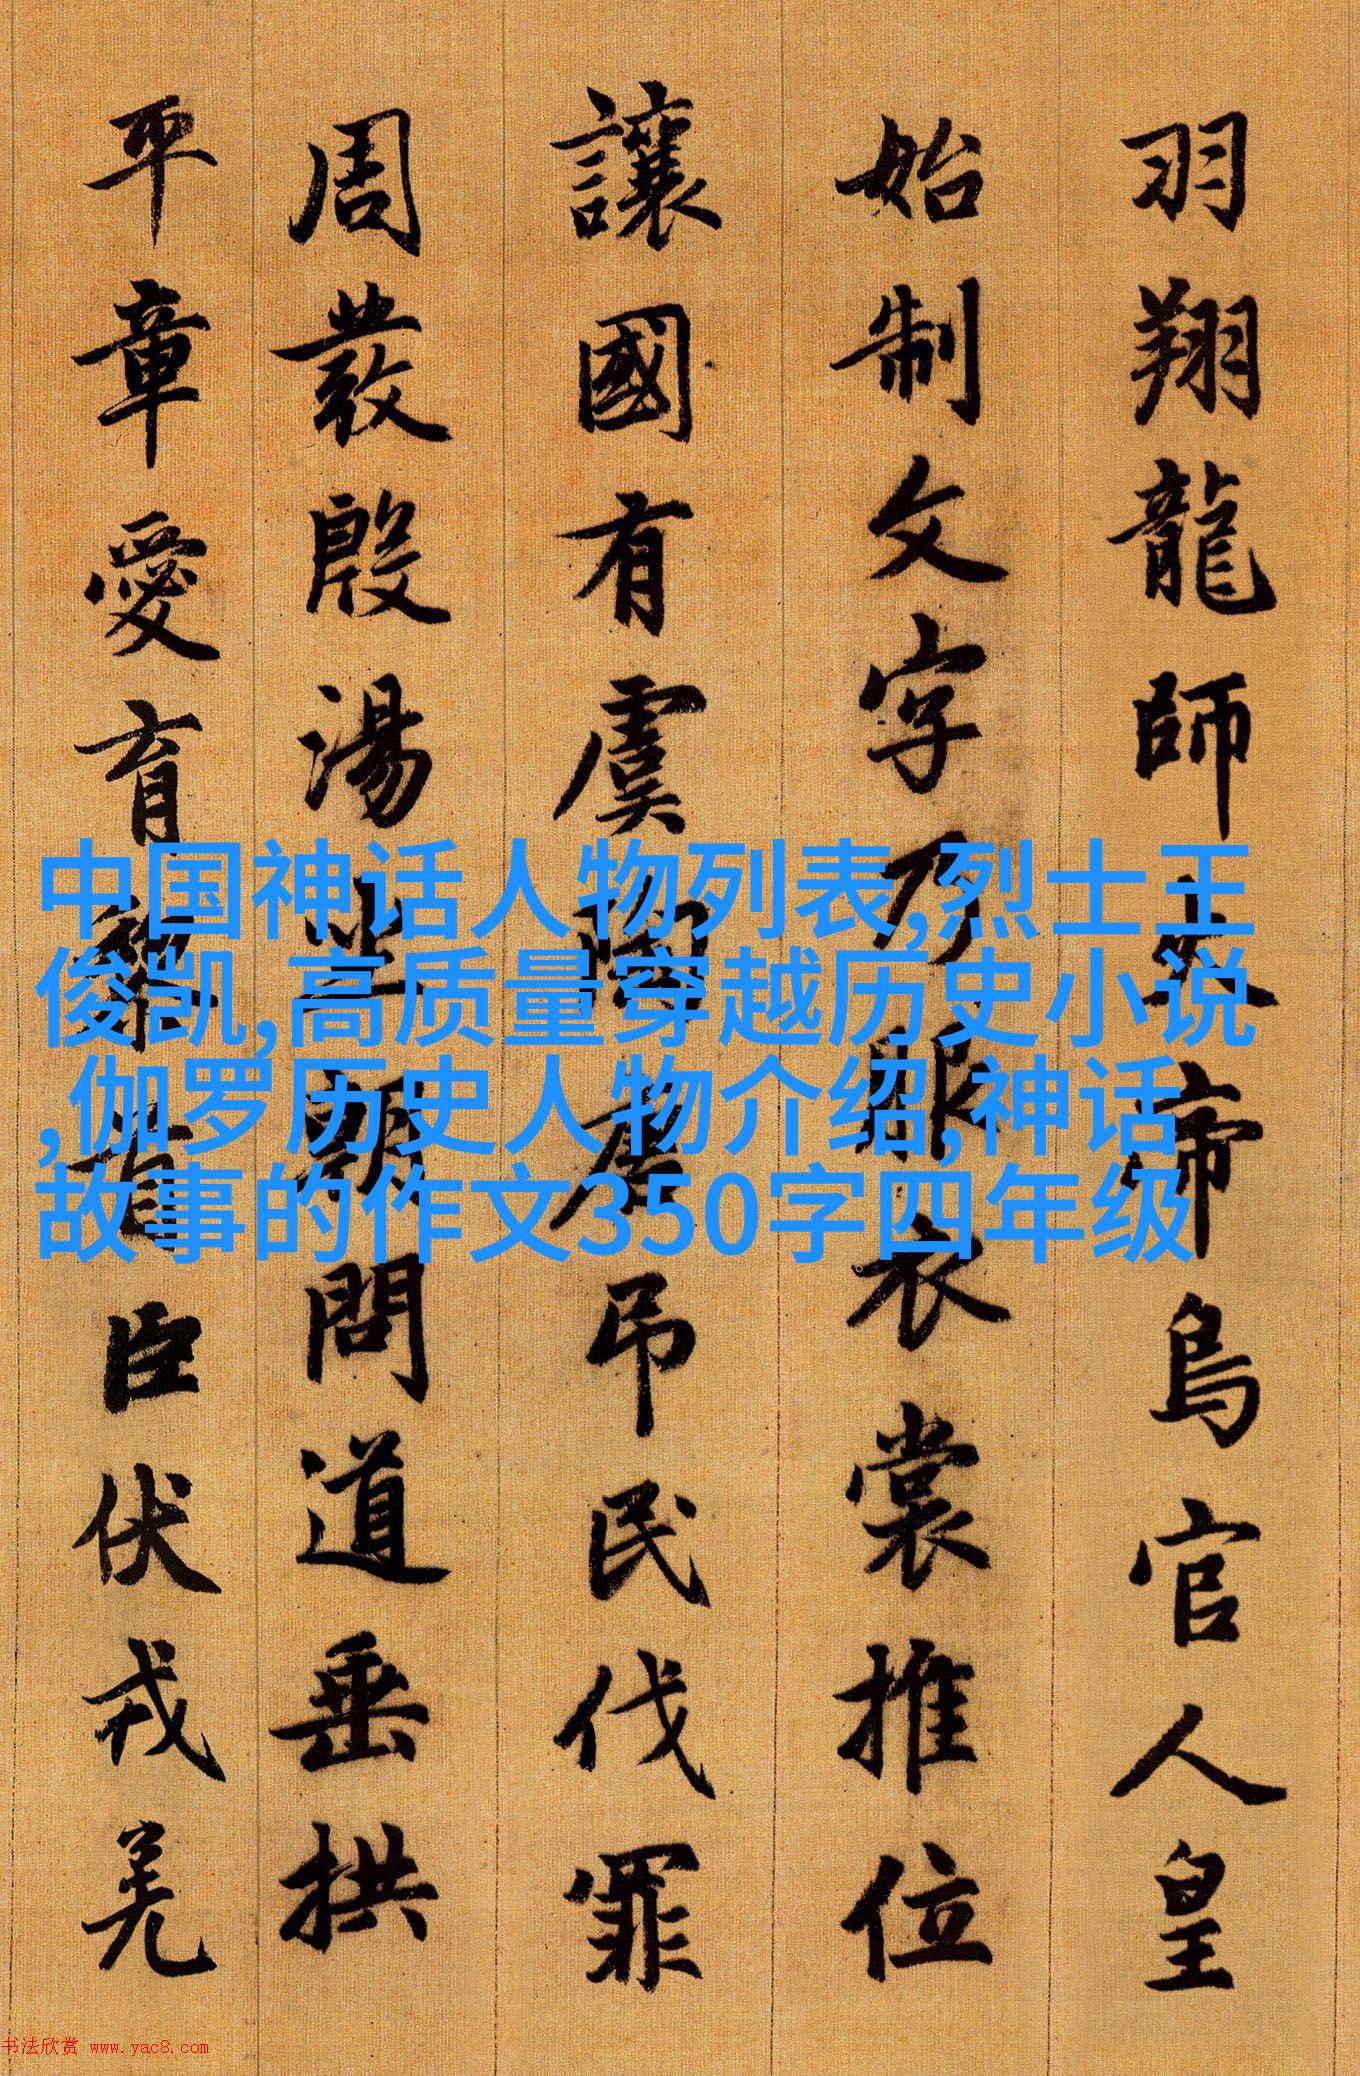 羽翔龍師火帝鳥官人皇
始制文字乃服衣裳推位
讓國有虞陶唐吊民伐罪
周發殷湯坐朝問道垂拱
平章愛育黎首臣伏戎羌
中国神话人物列表,烈士王
俊凯,高质量穿越历史小说
,伽罗历史人物介绍,神话
故事的作文350字四年级
书法欣赏 www.yac8.com